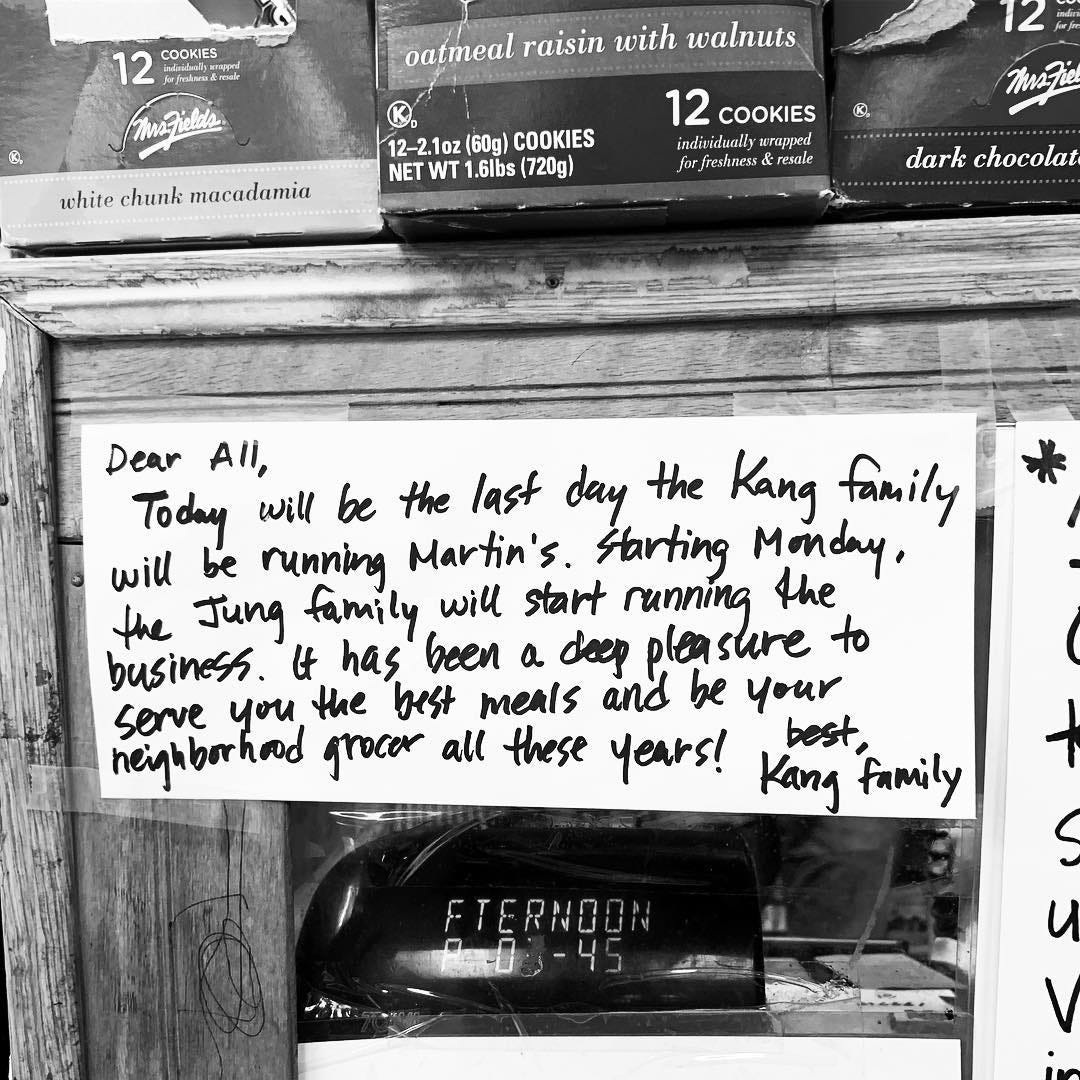 12 COOKIES
individually wrapped
for freshness & resale
Mrs. Fields
white chunk macadamia
oatmeal raisin with walnuts
K D
12–2.1oz (60g) COOKIES
NET WT 1.6lbs (720g)
12 COOKIES
individually wrapped
for freshness & resale
12
Mrs. Fields
dark chocolate
Dear All,
Today will be the last day the Kang family
will be running Martin's. Starting Monday,
the Jung family will start running the
business. It has been a deep pleasure to
serve you the best meals and be your
neighborhood grocer all these years!
best,
Kang family
FTERNOON
-45
*